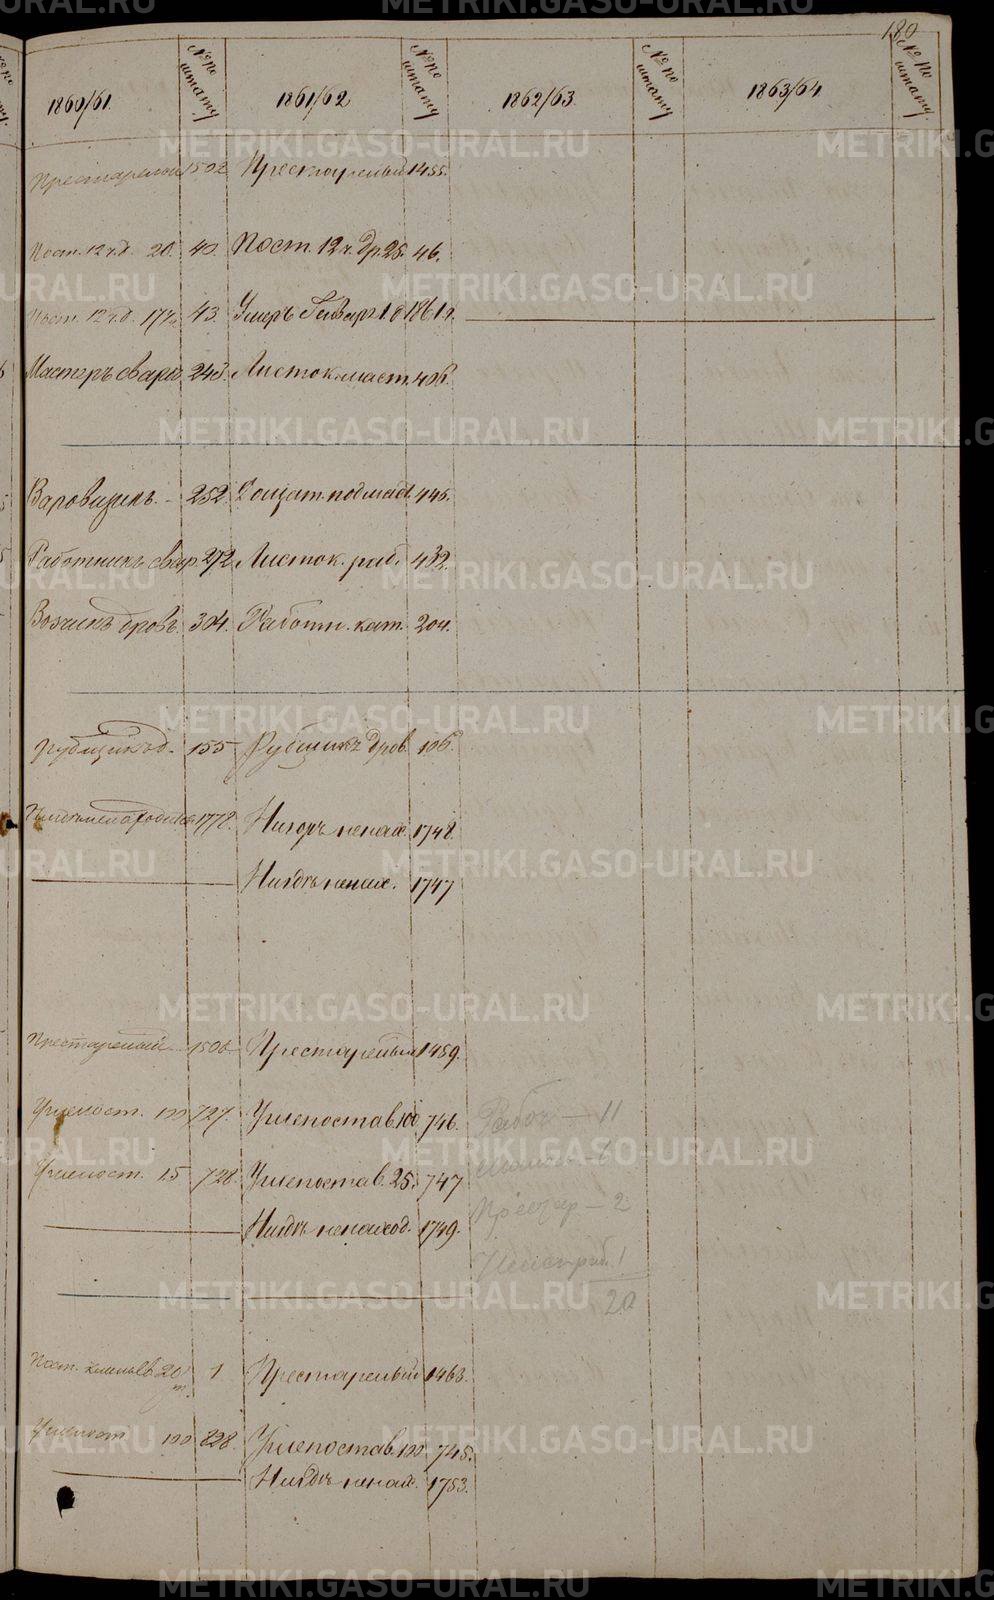 180
1860/61. № по штату 1861/62 № по штату 1862/63. № по штату 1863/64 № по штату.
Престарелой 1502 Престарелый 1455.
Пост. 12 ч. д. 20. 40. Пост. 12 ч. др. 25. 46.
Пост. 12 ч. д. 17 43. Умеръ Генваря 1861 г.
Мастеръ свароч 243. Листок. маст. 406.
Варовщикъ. 252. подмаст. 445.
Работникъ свар. 272. Листок. раб. 432.
Возчикъ дровъ. 304. Работн. кат. 204.
Рубщикъ д. 155 Рубщикъ дров. 106.
1778. Нигдѣ ненах. 1748.
Нигдѣ ненах. 1747
Престарелый 1506 Престарелый 1459.
Углепост. 100 727. Углепостав. 100 746.
Углепост. 15 728. Углепостав. 25. 747
Нигдѣ ненаход. 1749.
Рабоч — 11
— 6
Престар — 2
1
20
Пост. 20 1 Престарелый 1463.
Углепост 100 828. Углепостав. 100 745.
Нигдѣ ненах. 1753.
METRIKI.GASO-URAL.RU